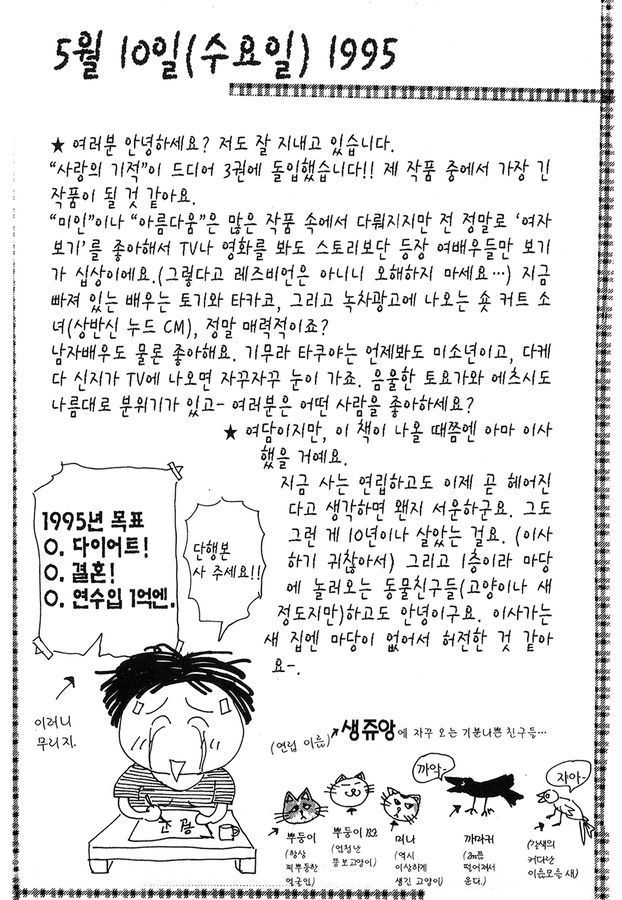 5월 10일(수요일) 1995
★ 여러분 안녕하세요? 저도 잘 지내고 있습니다.
“사랑의 기적”이 드디어 3권에 돌입했습니다!! 제 작품 중에서 가장 긴
작품이 될 것 같아요.
“미인”이나 “아름다움”은 많은 작품 속에서 다뤄지지만 전 정말로 ‘여자
보기’를 좋아해서 TV나 영화를 봐도 스토리보단 등장 여배우들만 보기
가 십상이에요.(그렇다고 레즈비언은 아니니 오해하지 마세요…) 지금
빠져 있는 배우는 토기와 타카코, 그리고 녹차광고에 나오는 숏 커트 소
녀(상반신 누드 CM), 정말 매력적이죠?
남자배우도 물론 좋아해요. 기무라 타쿠야는 언제봐도 미소년이고, 다케
다 신지가 TV에 나오면 자꾸자꾸 눈이 가죠. 음울한 토요가와 에츠시도
나름대로 분위기가 있고- 여러분은 어떤 사람을 좋아하세요?
★ 여담이지만, 이 책이 나올 때쯤엔 아마 이사
했을 거예요.
지금 사는 연립하고도 이제 곧 헤어진
다고 생각하면 왠지 서운하군요. 그도
그런 게 10년이나 살았는 걸요. (이사
하기 귀찮아서) 그리고 1층이라 마당
에 놀러오는 동물친구들(고양이나 새
정도지만)하고도 안녕이구요. 이사가는
새 집엔 마당이 없어서 허전한 것 같아
요-.
1995년 목표
O. 다이어트!
O. 결혼!
O. 연수입 1억엔.
단행본
사 주세요!!
이러니
무리지.
(연립 이름) 생쥬앙에 자꾸 오는 기분나쁜 친구들…
까악-
쟈아-
뿌둥이
(항상
찌뿌둥한
얼굴임)
뿌둥이
(엄청난
뚱보고양이)
미나
(역시
이상하게
생긴 고양이)
까마귀
(2m쯤
떨어져서
온다.)
(갈색의
커다란
이름모를 새)